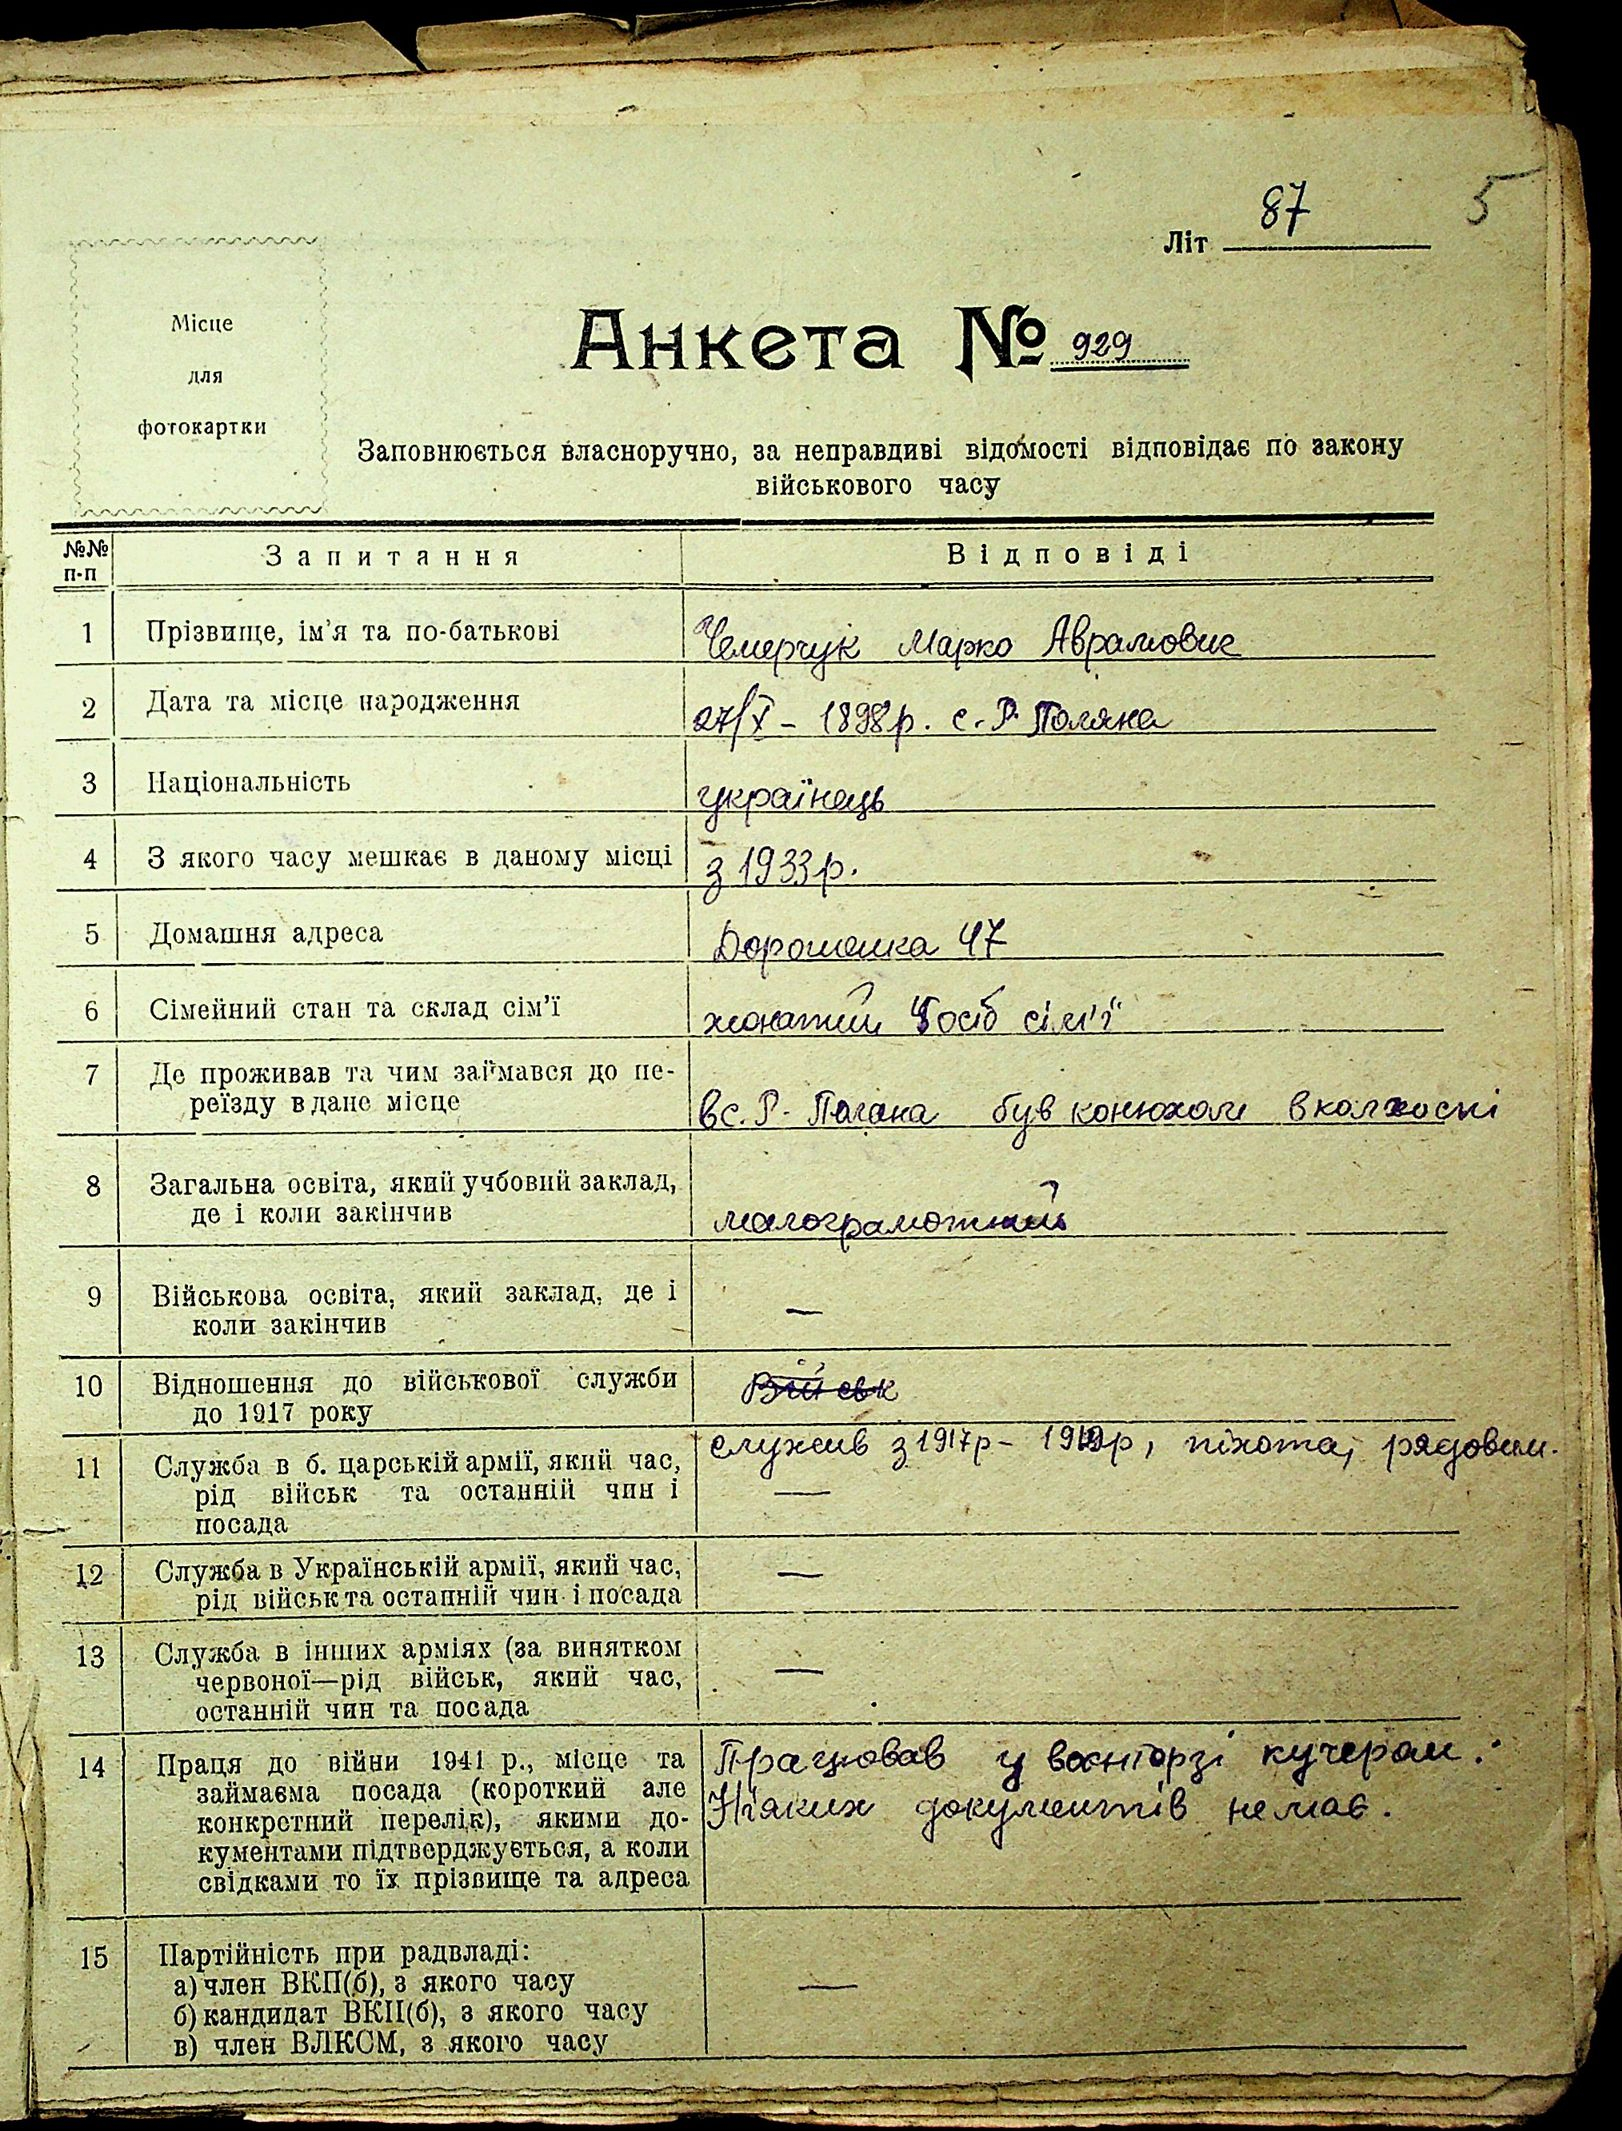 5
Літ 87
Місце
для
фотокартки
Анкета № 929
Заповнюється власноручно, за неправдиві відомості відповідає по закону
військового часу
№№ п-п Запитання Відповіді
1 Прізвище, ім'я та по-батькові Чемерчук Марко Аврамович
2 Дата та місце народження 27/X – 1898р. с. Р. Поляна
3 Національність українець
4 З якого часу мешкає в даному місці з 1933р.
5 Домашня адреса Дорошенка 47
6 Сімейний стан та склад сім'ї жонатий осіб сім'ї
7 Де проживав та чим займався до пе-
реїзду в дане місце в с. Р. Поляна був конюхом в колхоспі
8 Загальна освіта, який учбовий заклад,
де і коли закінчив малограмотний
9 Військова освіта, який заклад, де і
коли закінчив —
10 Відношення до військової служби Військ
до 1917 року
служив з 1917р – 1919р, піхота, рядовим.
11 Служба в б. царській армії, який час,
рід військ та останній чин і —
посада
12 Служба в Українській армії, який час, —
рід військ та останній чин і посада
13 Служба в інших арміях (за винятком
червоної—рід військ, який час, —
останній чин та посада
14 Праця до війни 1941 р., місце та Працював у воєнторзі кучером.
займаєма посада (короткий але
конкретний перелік), якими до- Ніяких документів немає.
кументами підтверджується, а коли
свідками то їх прізвище та адреса
15 Партійність при радвладі:
а) член ВКП(б), з якого часу —
б) кандидат ВКП(б), з якого часу
в) член ВЛКСМ, з якого часу